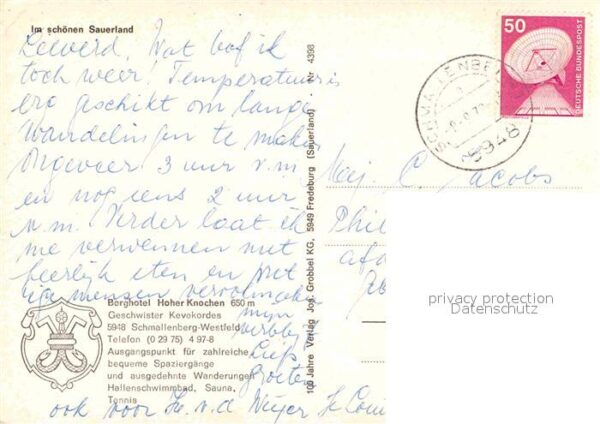 Im schönen Sauerland
Leeverd, Wat bof ik
toch weer. Temperatuur is
erg geschikt om lange
wandelingen te maken
Ongeveer 3 uur v.m
en nog eens 2 uur
n.m. Verder laat ik
me verwennen met
heerlijk eten en pret
tige mensen vervolmaken
mijn
verblijf
Liefs
groeten
ook voor v.d. Weijer
Berghotel Hoher Knochen 650 m
Geschwister Kevekordes
5948 Schmallenberg-Westfeld
Telefon (0 29 75) 4 97-8
Ausgangspunkt für zahlreiche
bequeme Spaziergänge
und ausgedehnte Wanderungen
Hallenschwimmbad, Sauna,
Tennis
100 Jahre Verlag Jos. Grobbel KG, 5949 Fredeburg (Sauerland) · Nr 4398
50
DEUTSCHE BUNDESPOST
SCHMALLENBERG
5948
Mej. C. Jacobs
Phil
afd
privacy protection
Datenschutz